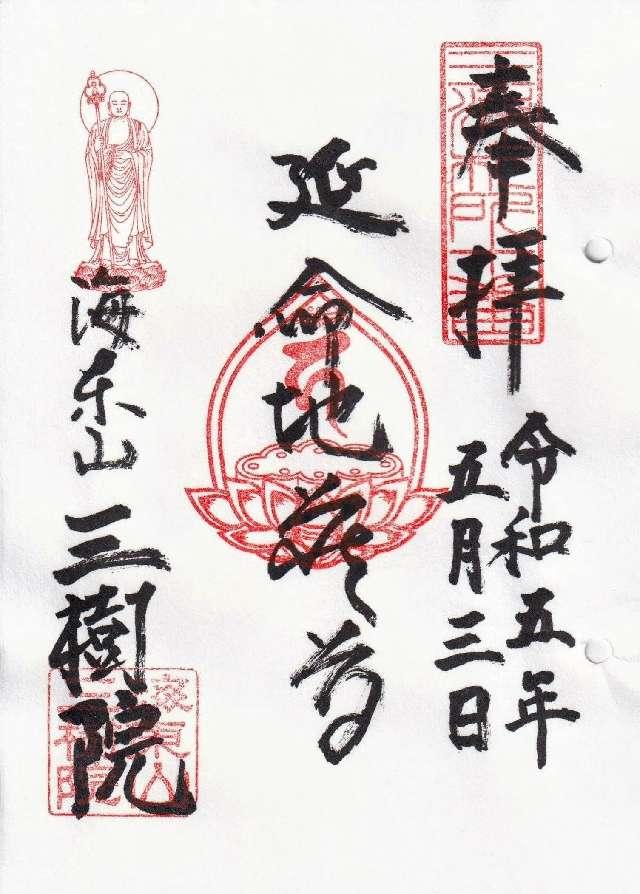 奉拝
令和五年
五月三日
延命地蔵尊
海东山
三樹院